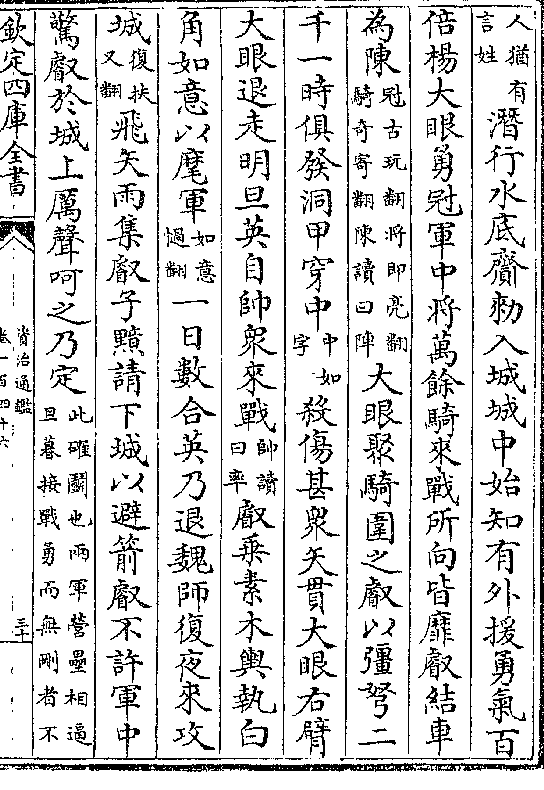 人猶有言姓潛行水底齎勅入城城中始知有外援勇氣百
倍楊大眼勇冠軍中將萬餘騎來戰所向皆靡叡結車
為陳冠古玩翻將即亮翻騎奇寄翻陳讀曰陣大眼聚騎圍之叡以彊弩二
千一時俱發洞甲穿中中如字殺傷甚衆矢貫大眼右臂
大眼退走明旦英自帥衆來戰帥讀曰率叡乗素木輿執白
角如意以麾軍如意慨翻一日數合英乃退魏師復夜來攻
城復扶又翻飛矢雨集叡子黯請下城以避箭叡不許軍中
驚叡於城上厲聲呵之乃定此確鬭也兩軍營壘相逼旦暮接戰勇而無剛者不
欽定四庫全書
資治通鑑
卷一百四十六
三十